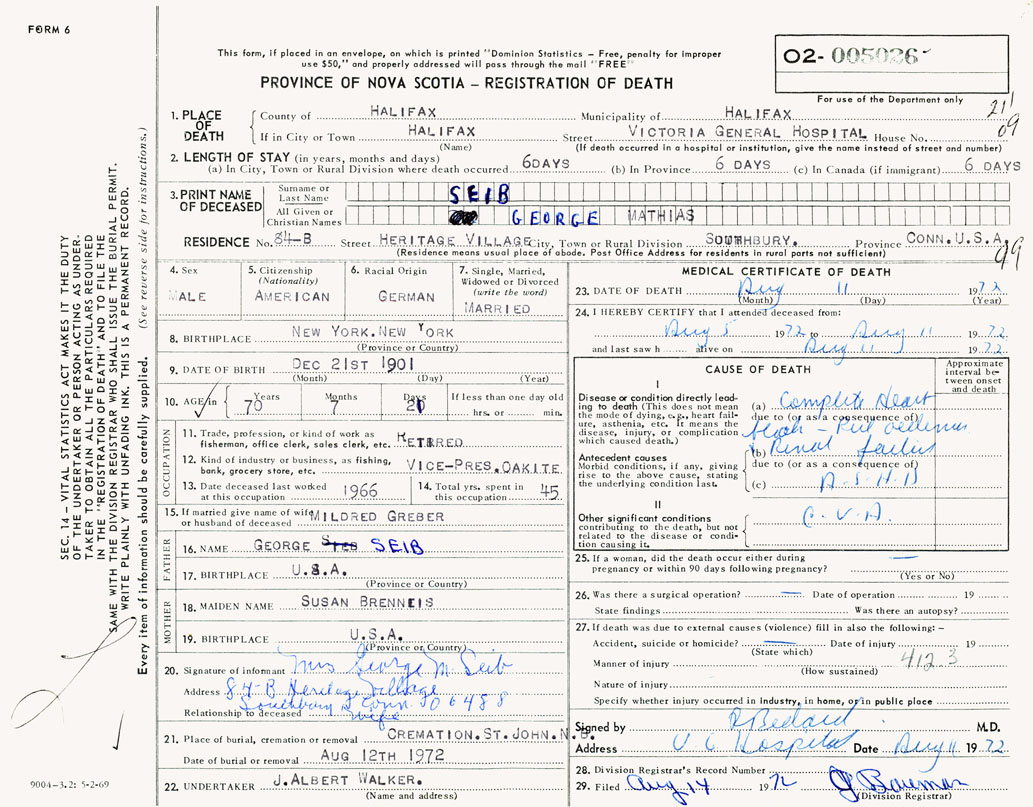 FORM 6
This form, if placed in an envelope, on which is printed "Dominion Statistics – Free, penalty for improper
use $50," and properly addressed will pass through the mail "FREE"
PROVINCE OF NOVA SCOTIA – REGISTRATION OF DEATH
02- 005026
For use of the Department only
211
09
1. PLACE OF DEATH
County of HALIFAX Municipality of HALIFAX
If in City or Town HALIFAX Street VICTORIA GENERAL HOSPITAL House No.
(Name) (If death occurred in a hospital or institution, give the name instead of street and number)
2. LENGTH OF STAY (in years, months and days)
(a) In City, Town or Rural Division where death occurred 6DAYS (b) In Province 6 DAYS (c) In Canada (if immigrant) 6 DAYS
3. PRINT NAME OF DECEASED
Surname or Last Name SEIB
All Given or Christian Names GEORGE MATHIAS
RESIDENCE No. 84-B Street HERITAGE VILLAGE City, Town or Rural Division SOUTHBURY. Province CONN.U.S.A.
(Residence means usual place of abode. Post Office Address for residents in rural parts not sufficient)
99
4. Sex
MALE
5. Citizenship
(Nationality)
AMERICAN
6. Racial Origin
GERMAN
7. Single, Married,
Widowed or Divorced
(write the word)
MARRIED
8. BIRTHPLACE NEW YORK.NEW YORK
(Province or Country)
9. DATE OF BIRTH DEC 21ST 1901
(Month) (Day) (Year)
10. AGE in Years 70 Months 7 Days 21 If less than one day old
hrs. or min.
OCCUPATION
11. Trade, profession, or kind of work as
fisherman, office clerk, sales clerk, etc. RETIRED
12. Kind of industry or business, as fishing,
bank, grocery store, etc. VICE-PRES.OAKITE
13. Date deceased last worked
at this occupation 1966
14. Total yrs. spent in
this occupation 45
15. If married give name of wife
or husband of deceased MILDRED GREBER
FATHER
16. NAME GEORGE SEIB
17. BIRTHPLACE U.S.A.
(Province or Country)
MOTHER
18. MAIDEN NAME SUSAN BRENNEIS
19. BIRTHPLACE U.S.A.
(Province or Country)
20. Signature of informant Mrs George M. Seib
Address 84-B Heritage Village
Southbury Conn. 06488
Relationship to deceased wife
21. Place of burial, cremation or removal CREMATION.ST.JOHN.N.B.
Date of burial or removal AUG 12TH 1972
22. UNDERTAKER J.ALBERT WALKER.
(Name and address)
MEDICAL CERTIFICATE OF DEATH
23. DATE OF DEATH Aug 11 1972
(Month) (Day) (Year)
24. I HEREBY CERTIFY that I attended deceased from:
Aug 5 1972 to Aug 11 1972
and last saw h alive on Aug 11 1972
CAUSE OF DEATH
Approximate
interval be-
tween onset
and death
I
Disease or condition directly lead-
ing to death (This does not mean
the mode of dying, e.g., heart fail-
ure, asthenia, etc. It means the
disease, injury, or complication
which caused death.)
(a) Complete Heart
due to (or as a consequence of)
Antecedent causes
Morbid conditions, if any, giving
rise to the above cause, stating
the underlying condition last.
(b) Renal failure
due to (or as a consequence of)
(c) A.S.H.D
II
Other significant conditions
contributing to the death, but not
related to the disease or condi-
tion causing it.
C.V.A.
25. If a woman, did the death occur either during
pregnancy or within 90 days following pregnancy? —
(Yes or No)
26. Was there a surgical operation? — Date of operation 19
State findings Was there an autopsy?
27. If death was due to external causes (violence) fill in also the following: –
Accident, suicide or homicide? — Date of injury 19
(State which)
Manner of injury 412.3
(How sustained)
Nature of injury
Specify whether injury occurred in industry, in home, or in public place
Signed by M.D.
Address V G Hospital Date Aug 11 1972
28. Division Registrar's Record Number
29. Filed Aug 14 1972
(Division Registrar)
SEC. 14 – VITAL STATISTICS ACT MAKES IT THE DUTY
OF THE UNDERTAKER OR PERSON ACTING AS UNDER-
TAKER TO OBTAIN ALL THE PARTICULARS REQUIRED
IN THE "REGISTRATION OF DEATH" AND TO FILE THE
SAME WITH THE DIVISION REGISTRAR WHO SHALL ISSUE THE BURIAL PERMIT.
WRITE PLAINLY WITH UNFADING INK. THIS IS A PERMANENT RECORD.
Every item of information should be carefully supplied. (See reverse side for instructions.)
9004-3.2: 5-2-69